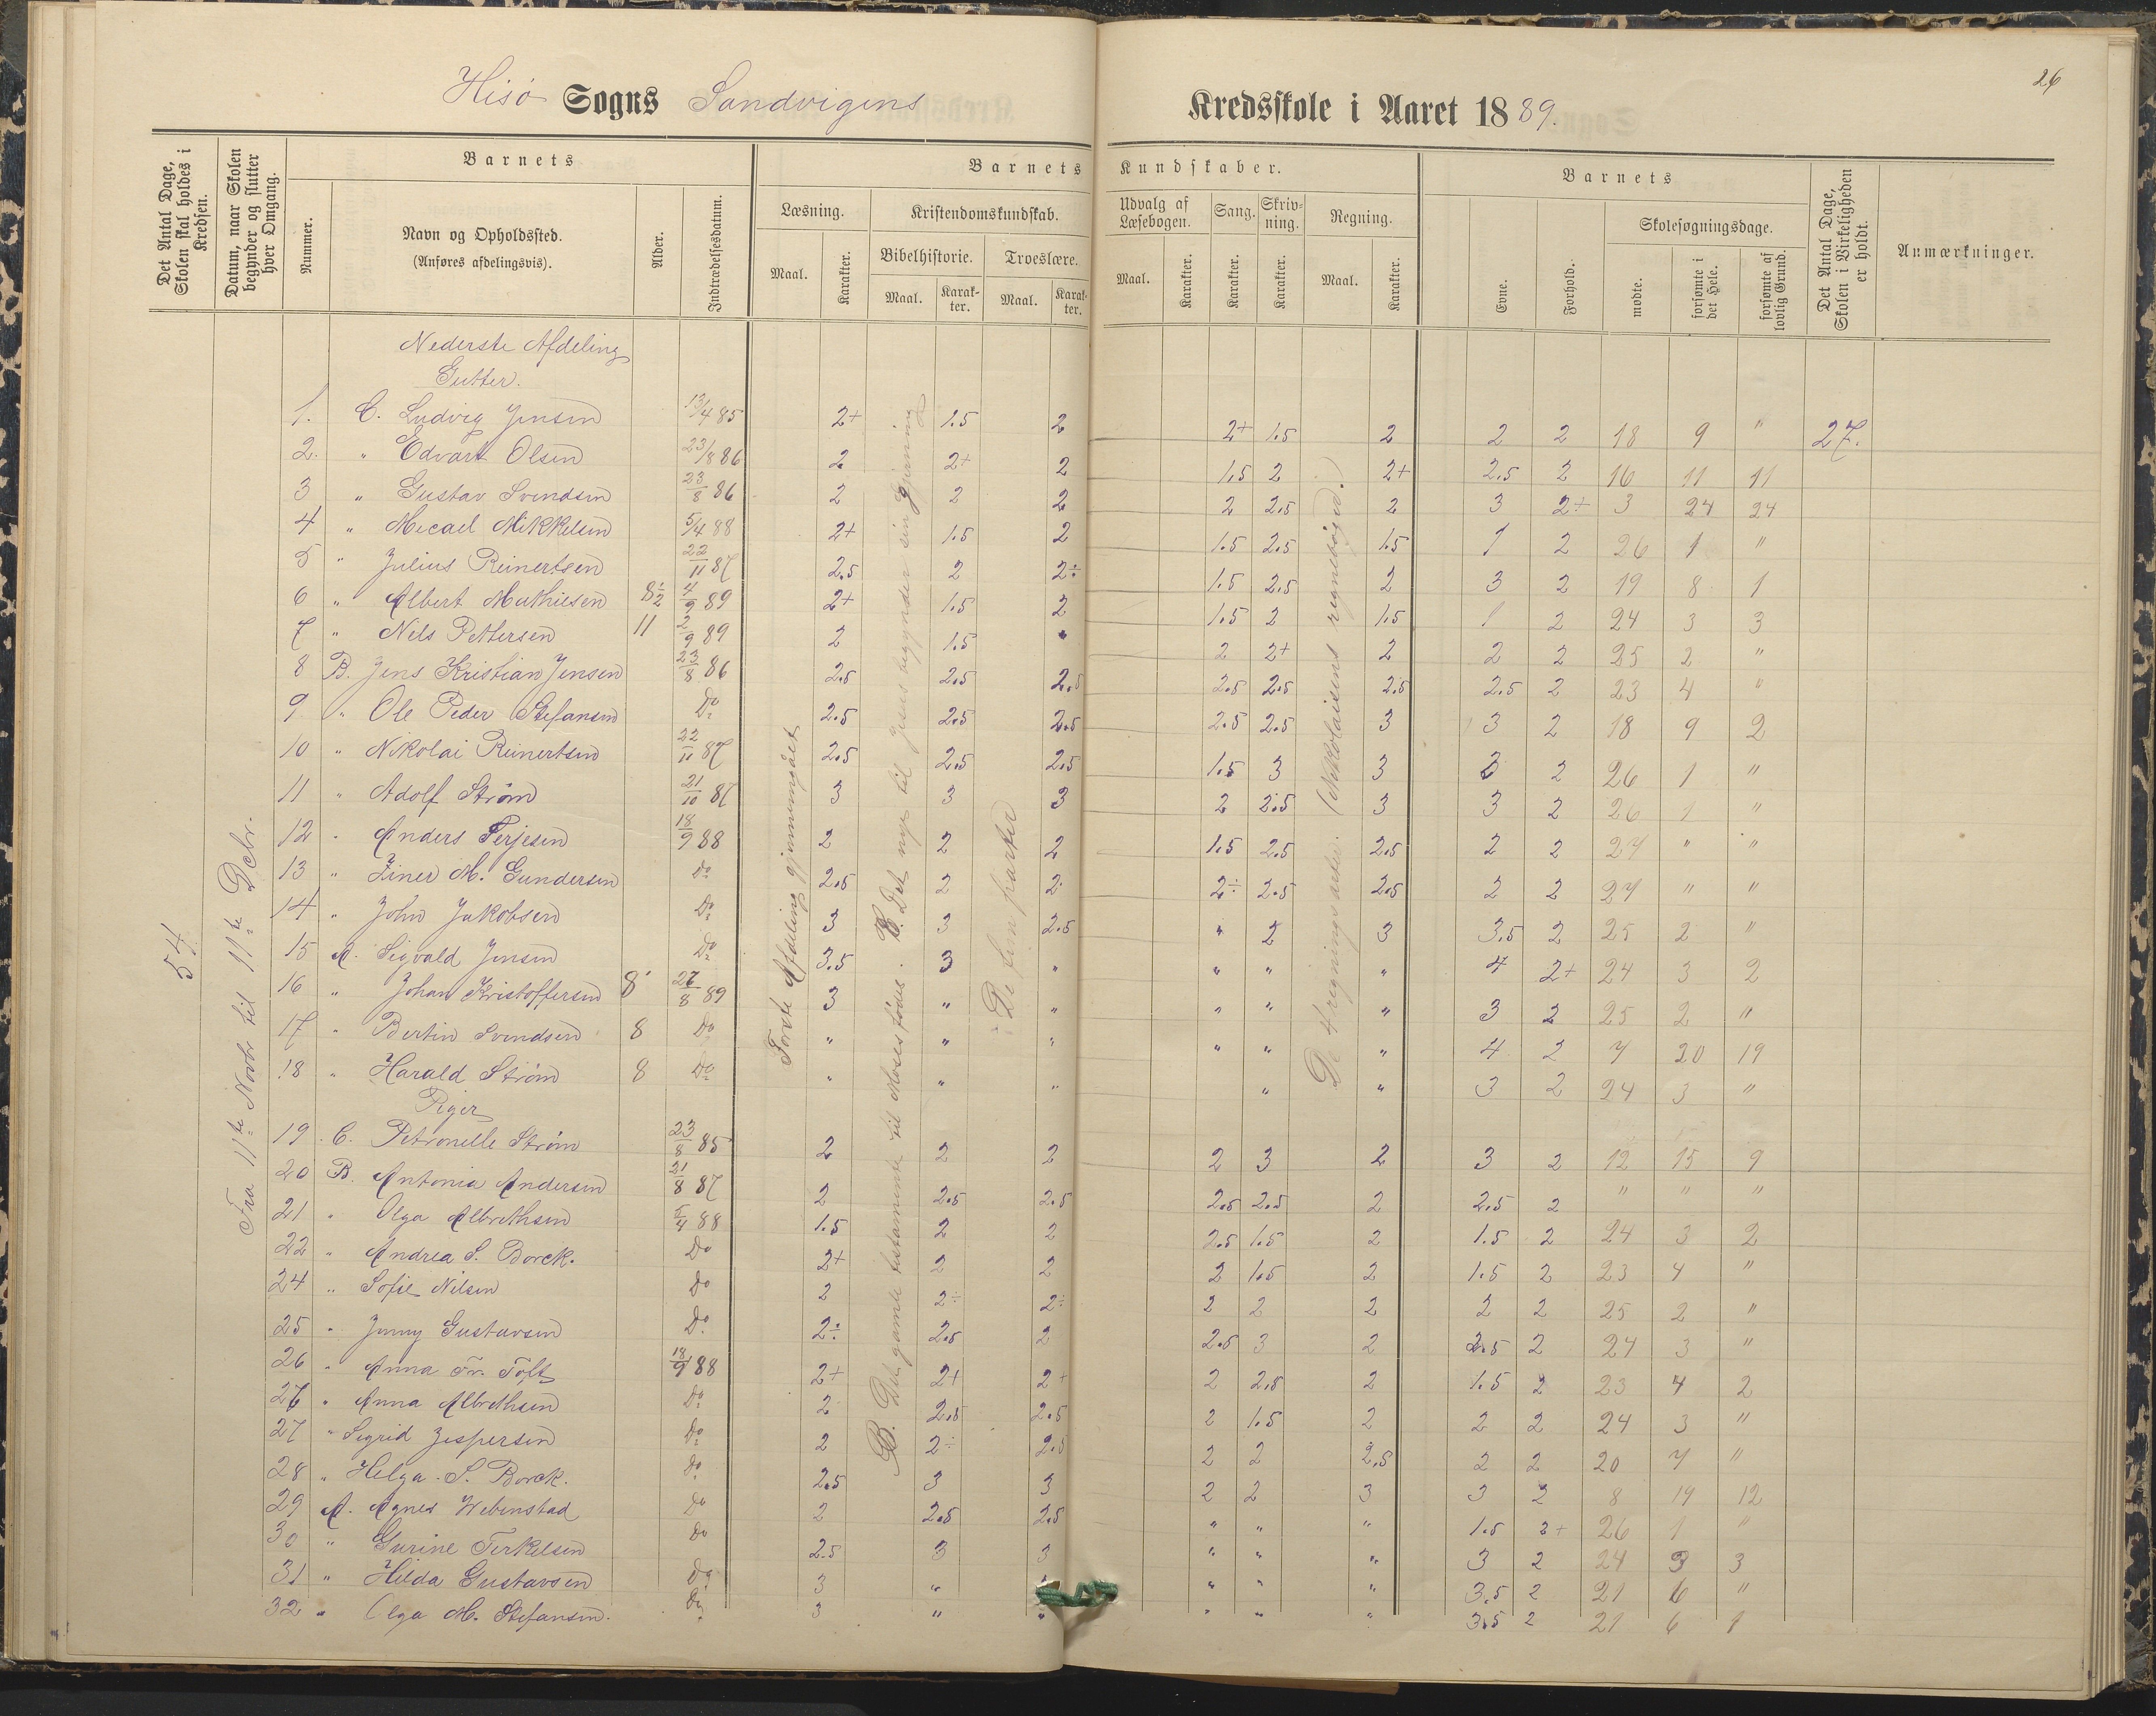 26
Hisö Sogns Sandvigens Kredsskole i Aaret 1889.
Det Antal Dage, Skolen skal holdes i Kredsen.
Datum, naar Skolen begynder og slutter hver Omgang.
Barnets
Nummer.
Navn og Opholdssted.
(Anføres afdelingsvis).
Alder.
Indtrædelsesdatum.
Barnets Kundskaber.
Læsning.
Maal.
Karakter.
Kristendomskundskab.
Bibelhistorie.
Maal.
Karakter.
Troeslære.
Maal.
Karakter.
Udvalg af Læsebogen.
Maal.
Karakter.
Sang.
Karakter.
Skrivning.
Karakter.
Regning.
Maal.
Karakter.
Barnets
Evne.
Forhold.
Skolesøgningsdage.
mødte.
forsømte i det Hele.
forsømte af lovlig Grund.
Det Antal Dage, Skolen i Virkeligheden er holdt.
Anmærkninger.
54
Fra 11te Novbr til 11te Decbr.
Første Afdeling gjennemgået
B. Det gamle testamente til Moses fødsel. C. Det nye til Jesus begynder sin gjerning
De fem parter
De 4 regningsarter. (Nikolaisens regnebøger.)
Nederste Afdeling
Gutter.
1. C. Ludvig Jensen 13/4 85 2+ 1.5 2 2+ 1.5 2 2 2 18 9 " 27.
2. " Edvart Olsen 23/8 86 2 2+ 2 1.5 2 2+ 2.5 2 16 11 11
3 " Gustav Svendsen 23/8 86 2 2 2 2 2.5 2 3 2+ 3 24 24
4 " Mecael Mikkelsen 5/4 88 2+ 1.5 2 1.5 2.5 1.5 1 2 26 1 "
5 " Julius Reinertsen 22/11 87 2.5 2 2÷ 1.5 2.5 2 3 2 19 8 1
6 " Albert Mathiesen 8½ 4/9 89 2+ 1.5 2 1.5 2 1.5 1 2 24 3 3
7 " Nils Pettersen 11 2/9 89 2 1.5 " 2 2+ 2 2 2 25 2 "
8 B. Jens Kristian Jensen 23/8 86 2.5 2.5 2.5 2.5 2.5 2.5 2.5 2 23 4 "
9 " Ole Peder Stefansen Do 2.5 2.5 2.5 2.5 2.5 3 3 2 18 9 2
10 " Nikolai Reinertsen 22/11 87 2.5 2.5 2.5 1.5 3 3 3 2 26 1 "
11 " Adolf Strøm 21/10 87 3 3 3 2 2.5 3 3 2 26 1 "
12 " Anders Terjesen 18/9 88 2 2 2 1.5 2.5 2.5 2 2 27 " "
13 " Einer M. Gundersen Do 2.5 2 2 2÷ 2.5 2.5 2 2 27 " "
14 " John Jakobsen Do 3 3 2.5 " 2 3 3.5 2 25 2 "
15 A. Sigvald Jensen Do 3.5 3 " " " " 4 2+ 24 3 2
16 " Johan Kristoffersen 8 27/8 89 3 " " " " " 3 2 25 2 "
17 " Bertin Svendsen 8 Do " " " " " " 4 2 7 20 19
18 " Harald Strøm 8 Do " " " " " 3 2 24 3 "
Piger
19 C. Petronelle Strøm 23/8 85 2 2 2 2 3 2 3 2 12 15 9
20 B. Antonia Andersen 21/8 87 2 2.5 2.5 2.5 2.5 2 2.5 2 " " "
21 " Olga Albrethsen 5/4 88 1.5 2 2 2.5 1.5 2 1.5 2 24 3 2
22 " Andrea S. Borck. Do 2+ 2 2 2 1.5 2 1.5 2 23 4 "
24 " Sofie Nilsen Do 2 2÷ 2÷ 2 2 2 2 2 25 2 "
25 " Jenny Gustavsen Do 2÷ 2.5 2 2.5 3 2 2.5 2 24 3 "
26 " Anna 18/9 88 2+ 2+ 2+ 2 2.5 2 1.5 2 23 4 2
26 " Anna Albrethsen Do 2 2.5 2.5 2 1.5 2 2 2 24 3 "
27 " Sigrid Jespersen Do 2 2÷ 2.5 2 2 2.5 2 2 20 7 "
28 " Helga S. Borck. Do 2.5 3 3 2 2 3 3 2 8 19 12
29 A. Agnes Webenstad Do 2 2.5 2.5 " " " 1.5 2+ 26 1 "
30 " Gurine Terkelsen Do 2.5 3 3 " " " 3 2 24 3 3
31 " Hilda Gustavsen Do 3 " " " " 3.5 2 21 6 "
32 " Olga M. Stefansen. Do 3 " " " " " 3.5 2 21 6 1